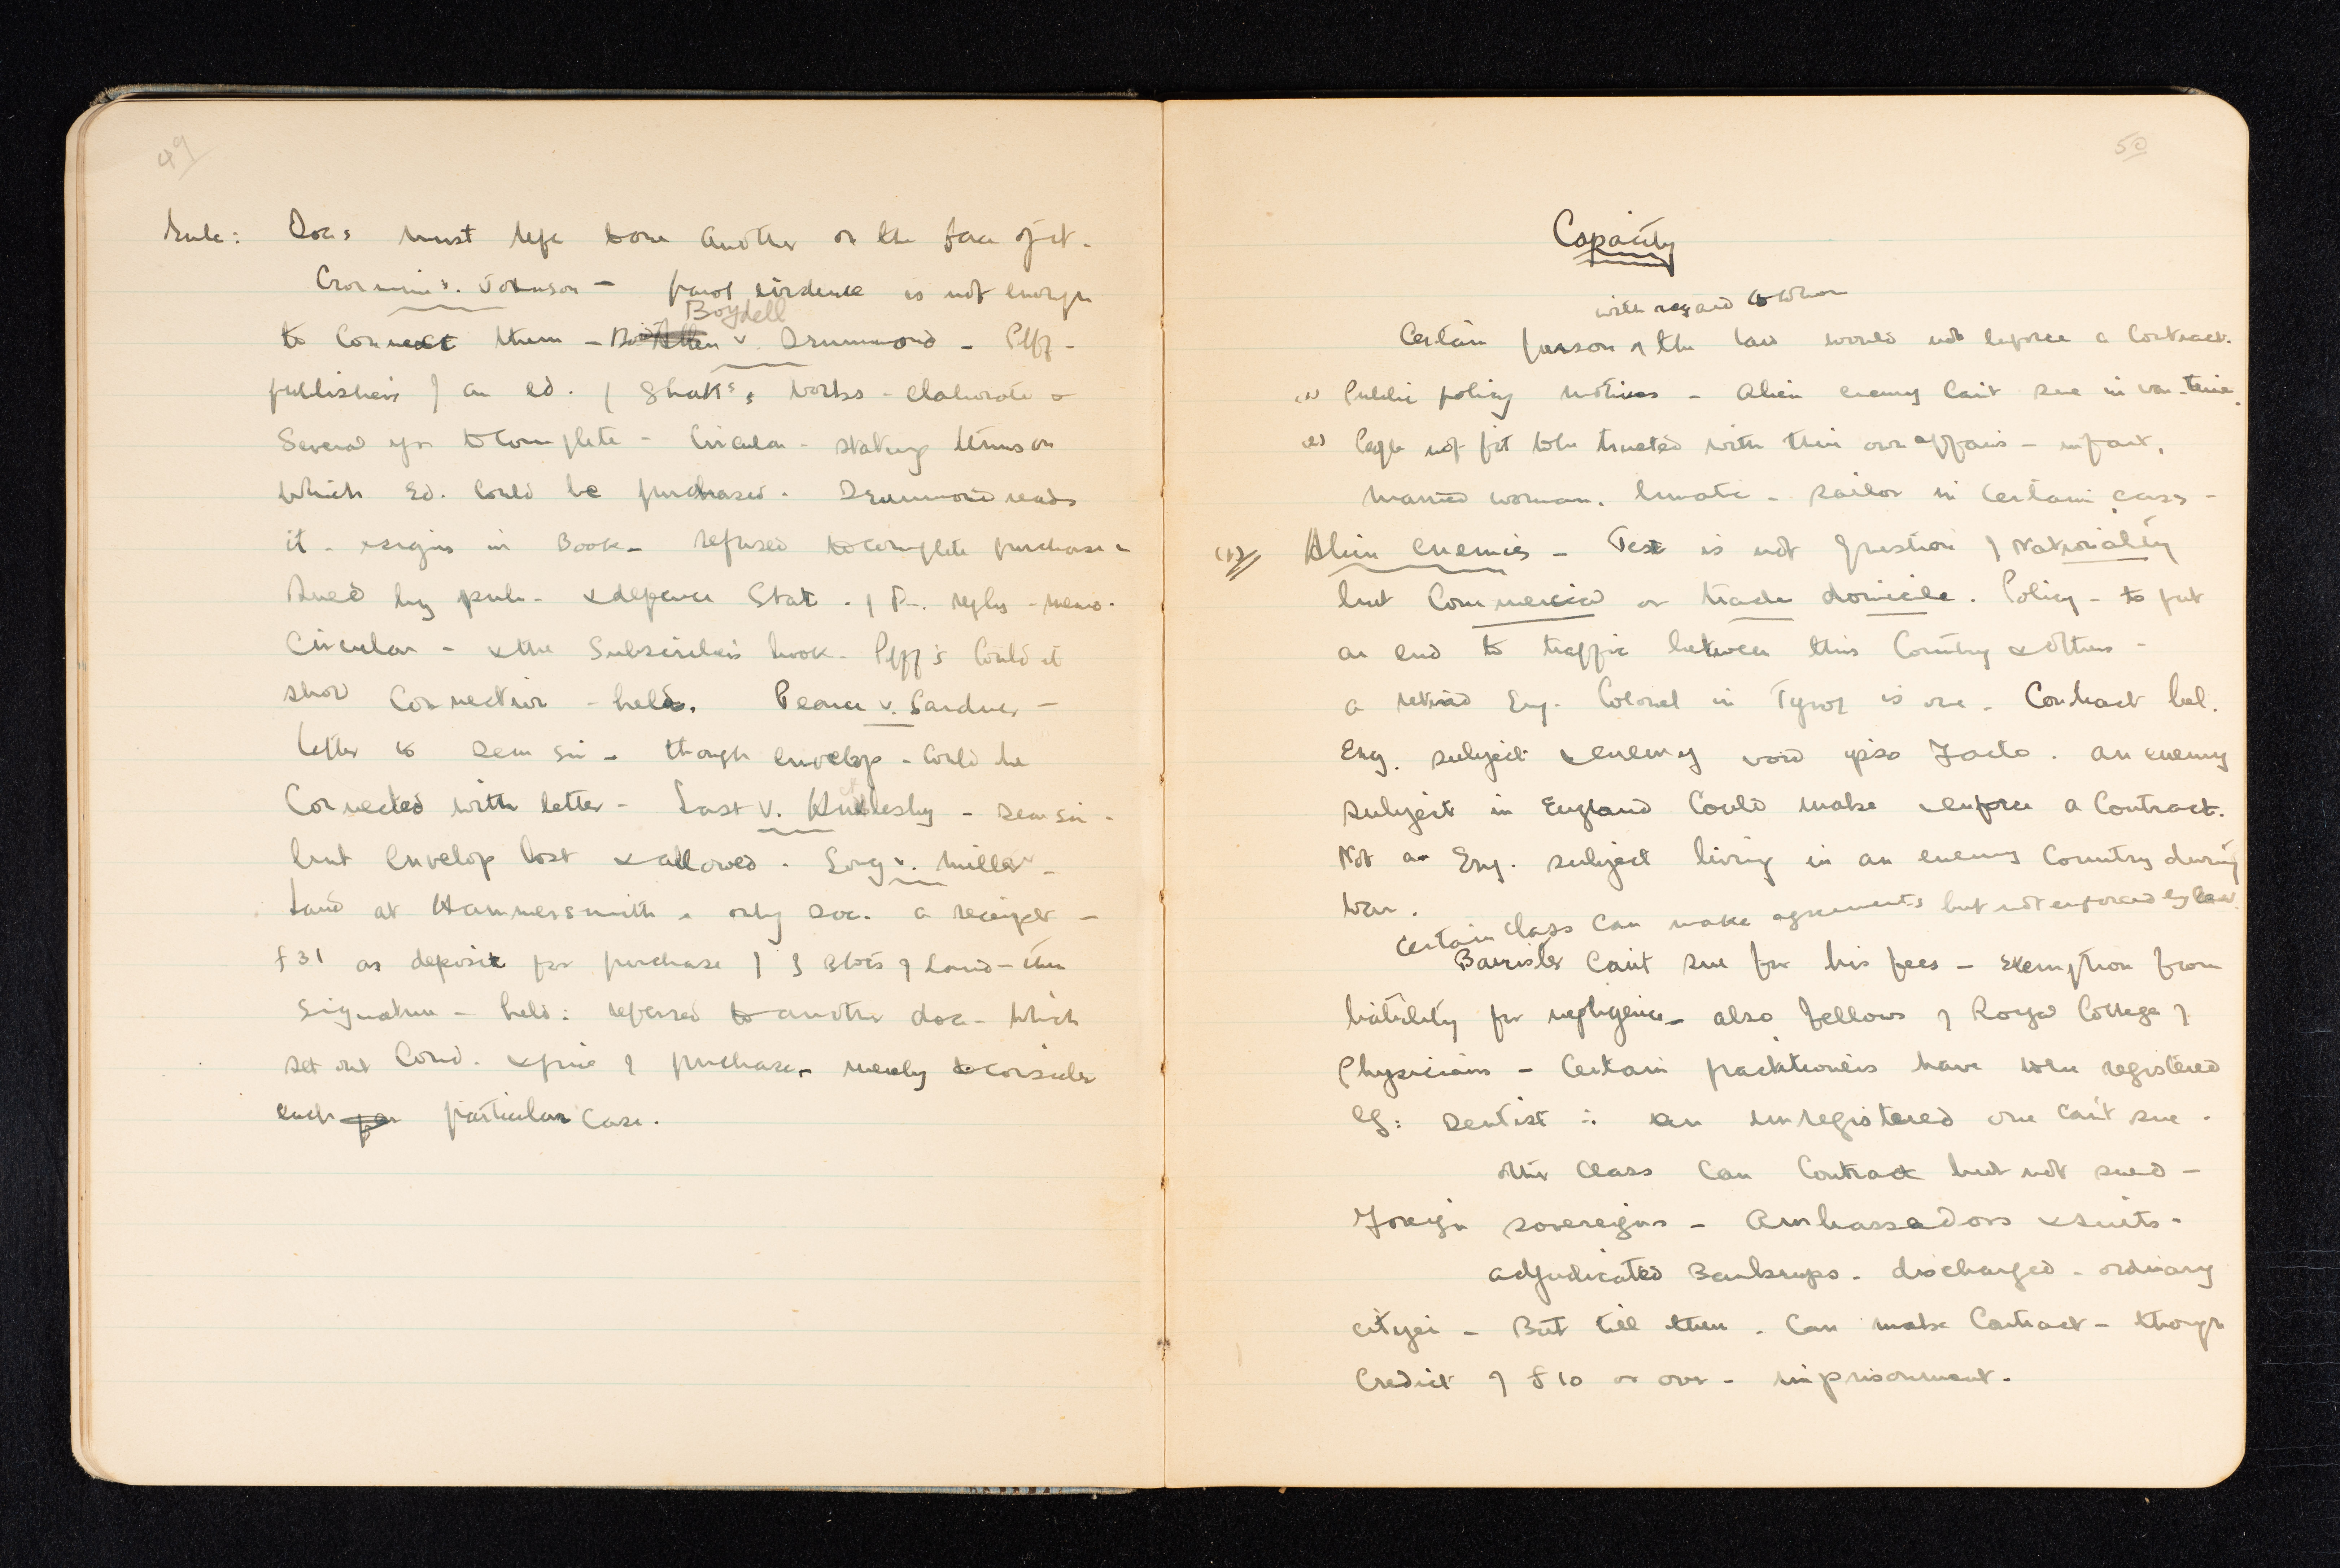 49
Rule: Docs must refer to one another on the face of it.
v. Johnson – parol evidence is not enough
Boydell
to connect them – v. Drummond – Plff –
publishers of an ed. of Shak's works – elaborate &
several yrs to complete – Circular – stating terms on
which Ed. could be purchased. Drummond reads
it – & signs in Book – refused to complete purchase –
Sued by pub – & defence Stat. of F–. reqs – memo.
Circular – & the Subscribers book – Plff's couldn't
show connection – held. Pearce v. Gardner –
letter to Dear Sir – though envelop – could be
connected with letter – Last v. Hucklesby – Dear Sir –
but envelop lost & allowed. Long v. Miller –
Land at Hammersmith – only doc. a receipt –
£31 as deposit for purchase of 3 plots of Land – then
signature – held: referred to another doc – which
set out Cond. & price of purchase – merely to consider
each particular case.
50
Capacity
with regard to whom
Certain persons the law would not enforce a Contract.
(1) Public policy motives – Alien enemy can't sue in war-time.
(2) People not fit to be trusted with their own affairs – infant,
married woman, lunatic – sailor in certain cases –
(1) Alien enemies – Test is not question of Nationality
but Commercial or trade domicile. Policy – to put
an end to traffic between this Country & others –
a retired Eng. Colonel in Tyrol is one – Contract bet.
Eng. subject & enemy void ipso facto. An enemy
subject in England could make & enforce a Contract.
Not an Eng. subject living in an enemy Country during
war.
Certain class can make agreements but not enforced by law.
Barrister can't sue for his fees – exemption from
liability for negligence – also fellows of Royal College of
Physicians – Certain practitioners have to be registered
eg: Dentist ∴ an unregistered one can't sue.
other class can contract but not sued –
Foreign sovereigns – Ambassadors & suits –
adjudicated Bankrups – discharged – ordinary
citizen – But till then – can make Contract – though
Credit of £10 or over – imprisonment.